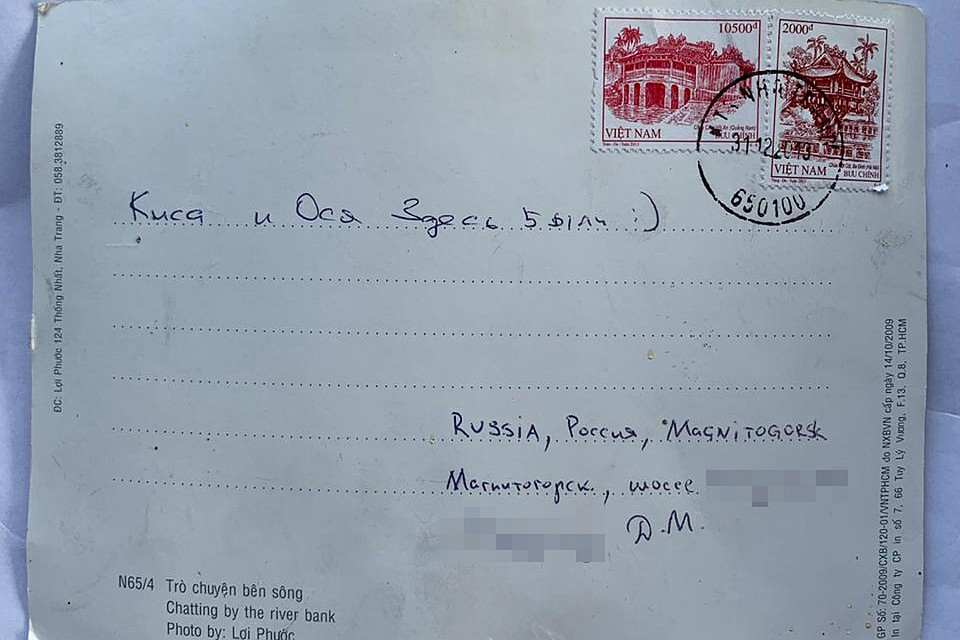 10500đ
2000đ
VIỆT NAM
BƯU CHÍNH
VIỆT NAM
BƯU CHÍNH
650100
Киса и Ося Здесь Были :)
RUSSIA, Россия, MAGNITOGORSK
Магнитогорск, шоссе
Д.М.
N65/4 Trò chuyện bên sông
Chatting by the river bank
Photo by: Lợi Phước
ĐC: Lợi Phước 124 Thống Nhất, Nha Trang - ĐT: 058.3812889
GP Số: 70-2009/CXB/120-01/VNTPHCM do NXBVN cấp ngày 14/10/2009
In tại Công ty CP in số 7, 66 Tuy Lý Vương, F.13, Q.8, TP.HCM